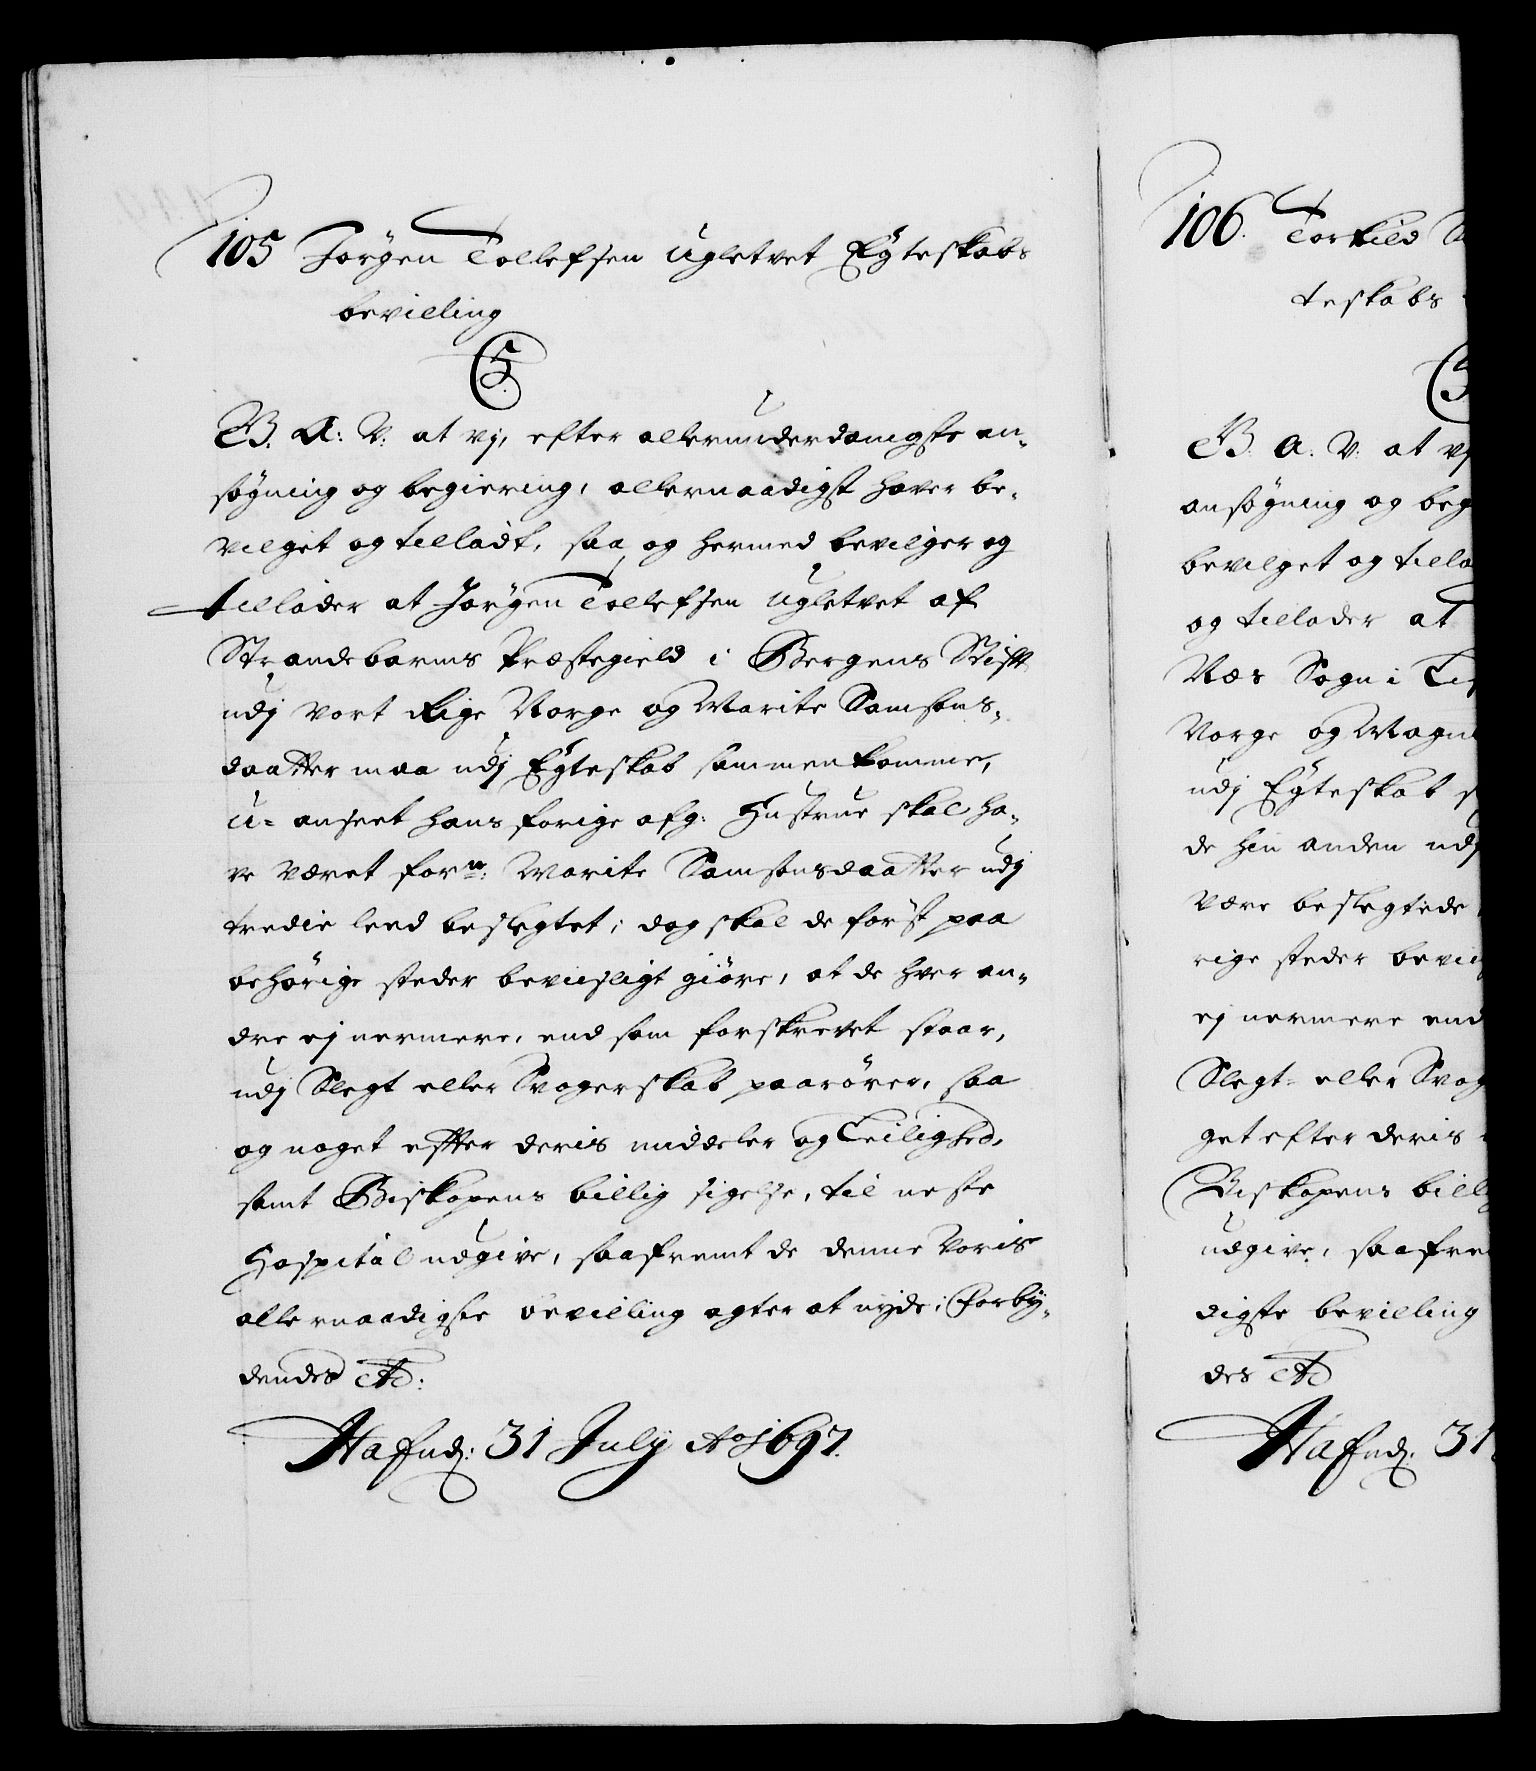 105 Jørgen Tollefsen Ugletvet Egteskabs
bevilling
5.
G. A: V: at vj, efter allerunderdanigste an-
søgning og begiering, allernaadigst haver be-
vilget og tilladt, saa og hermed bevilger og
tillader at Jørgen Tollefsen Ugletvet af
Strandebarms Præstegield i Bergens Stift
udj vort Rige Norge og Marite Samsons-
daatter maa udj Egteskab sammenkomme,
u- anseet hans forige afg: Hustrue skal ha-
ve været forne: Marite Samsonsdaatter udj
tredie leed beslegtet; dog skal de først paa
behørige steder beviisligt giøre, at de hver an-
dre ej nermere, end som forskrevet staar,
udj Slegt eller Svogerskab paarører, saa
og noget efter deris middeler og Leilighed,
samt Biskopens billig sigelse, til neste
Hospital udgive, saafremt de denne Voris
allernaadigste bevilling agter at nyde; Forby-
dendes etc:
Hafnd: 31 July Ao 1697.
106. Torkild
teskabs
G. A. V. at vj
ansøgning og beg
bevilget og tilla
og tillader at
Næs Sogn i
Norge og Magn
udj Egteskab s
de hin anden udj
være beslegtede
rige steder beviis
ej nermere end
Slegt- eller Svog
get efter deris
Biskopens bill
udgive, saafre
digste bevilling
des etc
Hafnd: 31